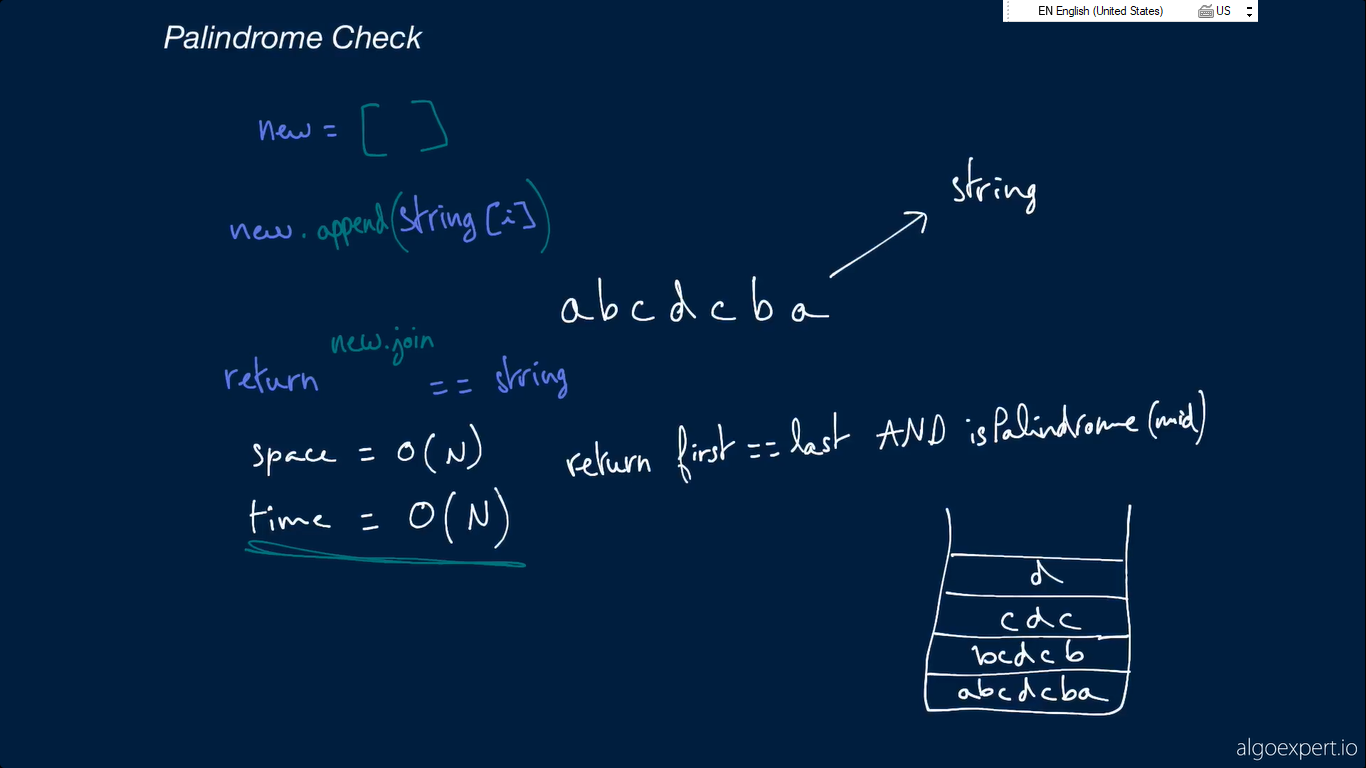 EN English (United States) US
Palindrome Check
new = [ ]
new.append(string[i])
string
abcdcba
new.join
return == string
space = O(N)
time = O(N)
return first == last AND isPalindrome(mid)
d
cdc
bcdcb
abcdcba
algoexpert.io